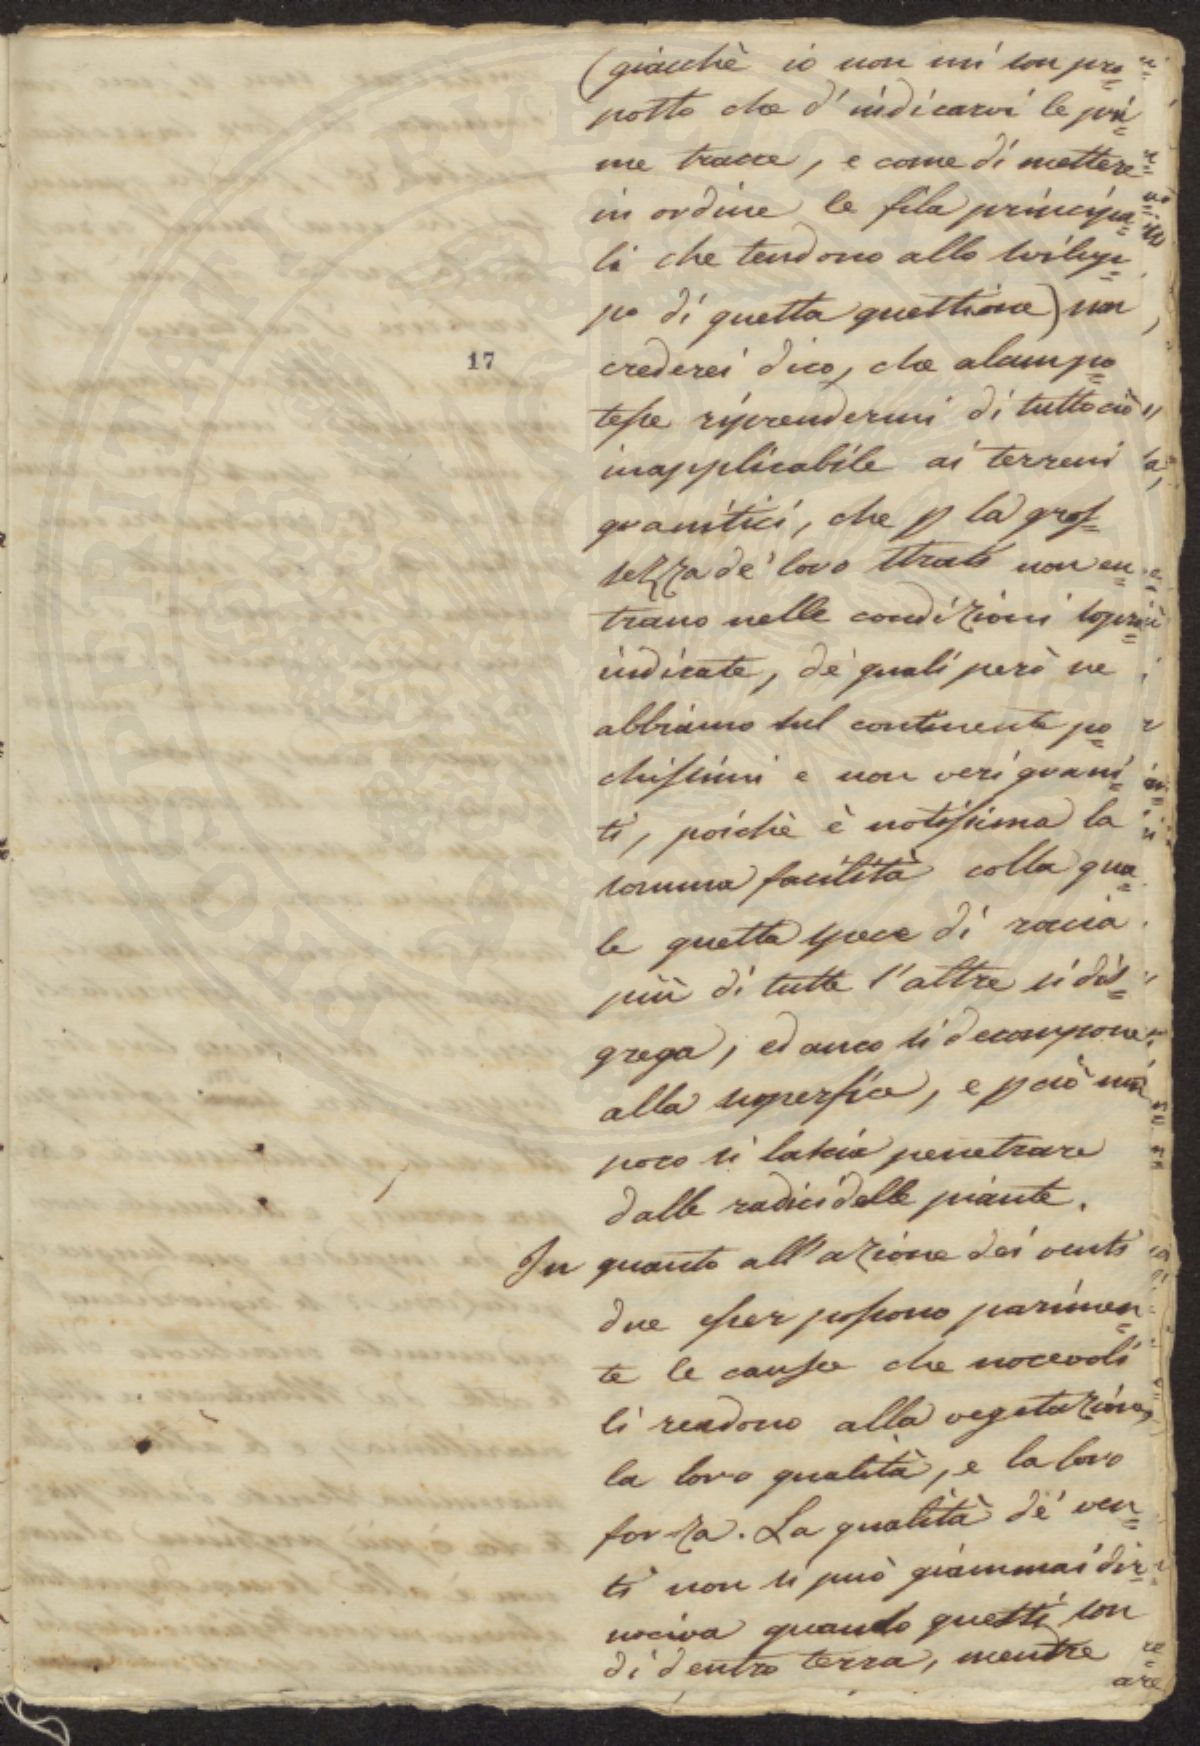 (giacchè io non mi son pro=
posto che d'indicarvi le pri=
me tracce, e come di mettere
in ordine le fila principa=
li che tendono allo svilup=
po di questa questione) non
17
crederei dico, che alcun po=
tesse riprendermi di tuttociò
inapplicabile ai terreni
granitici, che p la gros=
sezza de' loro strati non en=
trano nelle condizioni sopra=
indicate, de' quali però ne
abbiamo sul continente po=
chissimi e non veri grani=
ti, poichè è notissima la
somma facilità colla qua=
le questa spece di roccia
più di tutte l'altre si dis=
grega, ed anco si decompone
alla superfice, e p ciò non
poco si lascia penetrare
dalle radici delle piante.
In quanto all'azione dei venti
due esser possono parimen=
te le cause che nocevoli
li rendono alla vegetazione,
la loro qualità, e la loro
forza. La qualità de' ven=
ti non si può giammai dir=
nociva quando questi son
di dentro terra, mentre
are